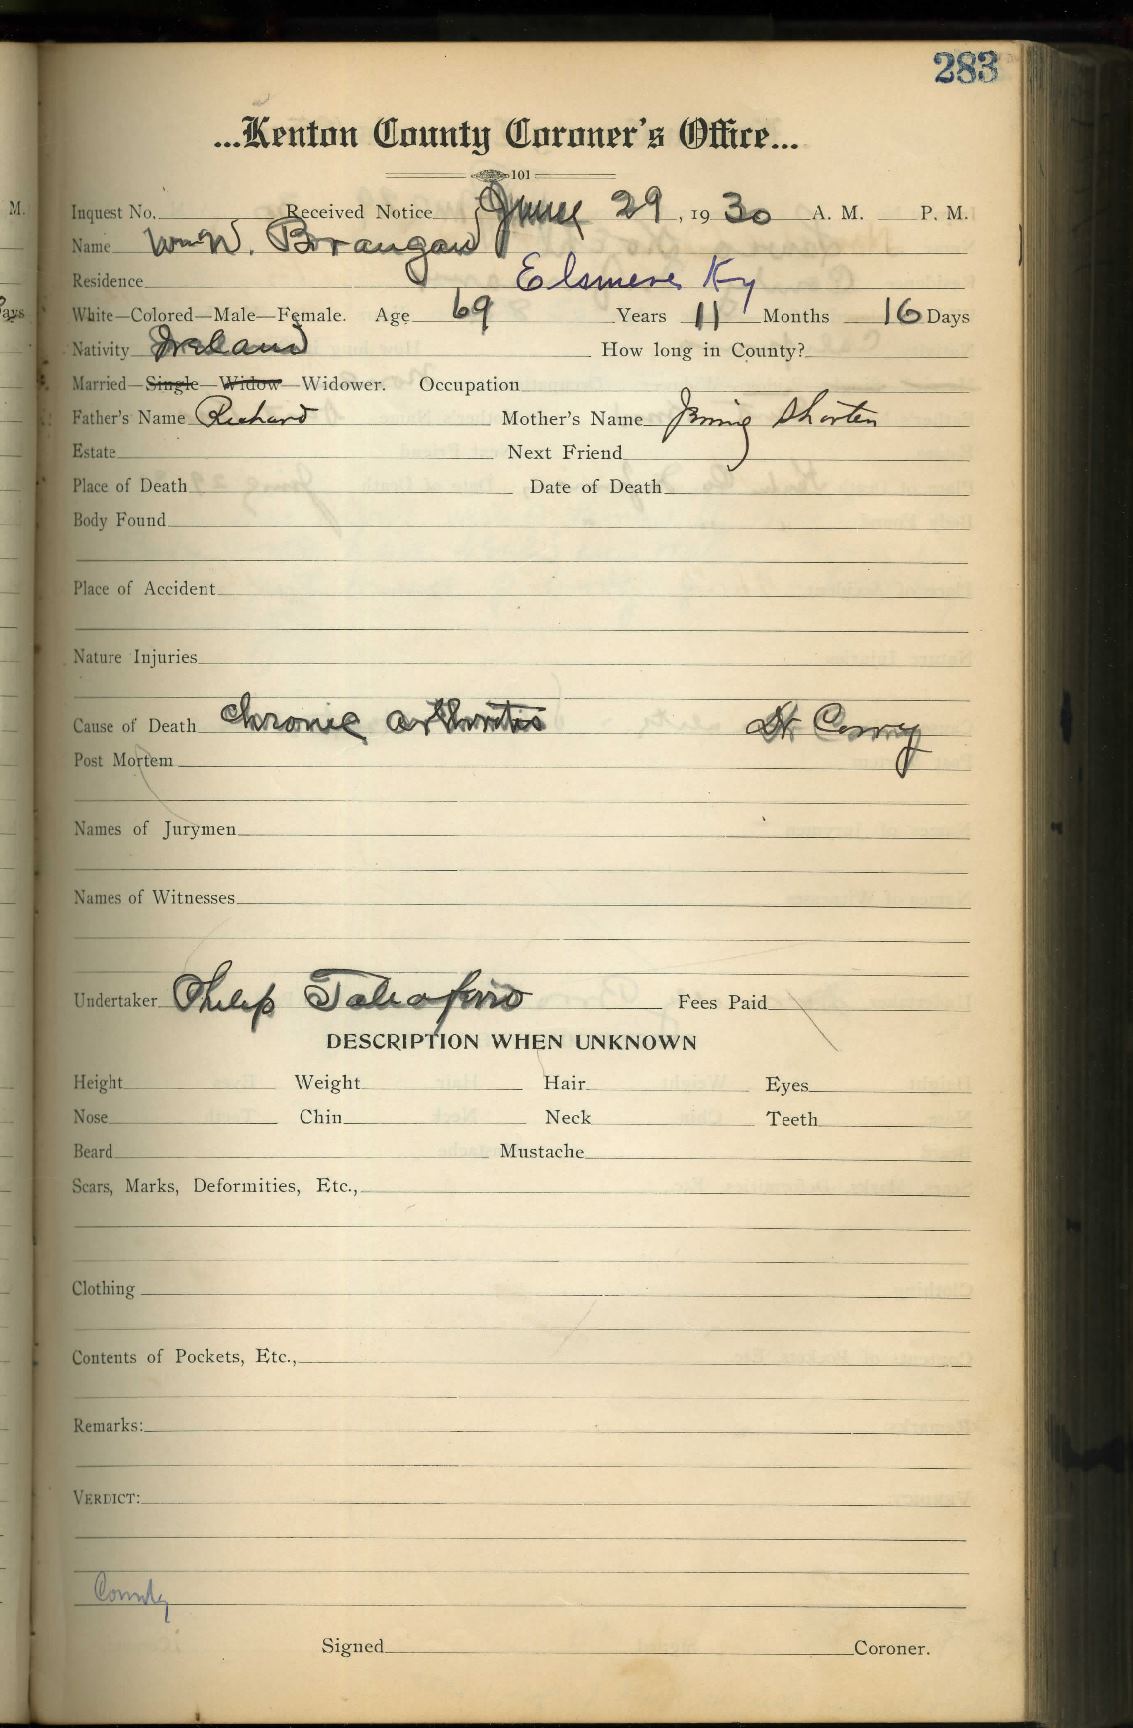 283
...Kenton County Coroner's Office...
101
Inquest No. Received Notice June 29, 1930 A. M. P. M.
Name Wm W. Brangan
Residence Elsmere Ky
White—Colored—Male—Female. Age 69 Years 11 Months 16 Days
Nativity Ireland How long in County?
Married—Single—Widow—Widower. Occupation
Father's Name Richard Mother's Name Shorten
Estate Next Friend
Place of Death Date of Death
Body Found
Place of Accident
Nature Injuries
Cause of Death Chronic arthritis Dr
Post Mortem
Names of Jurymen
Names of Witnesses
Undertaker Philip Taliaferro Fees Paid
DESCRIPTION WHEN UNKNOWN
Height Weight Hair Eyes
Nose Chin Neck Teeth
Beard Mustache
Scars, Marks, Deformities, Etc.,
Clothing
Contents of Pockets, Etc.,
Remarks:
VERDICT:
County
Signed Coroner.